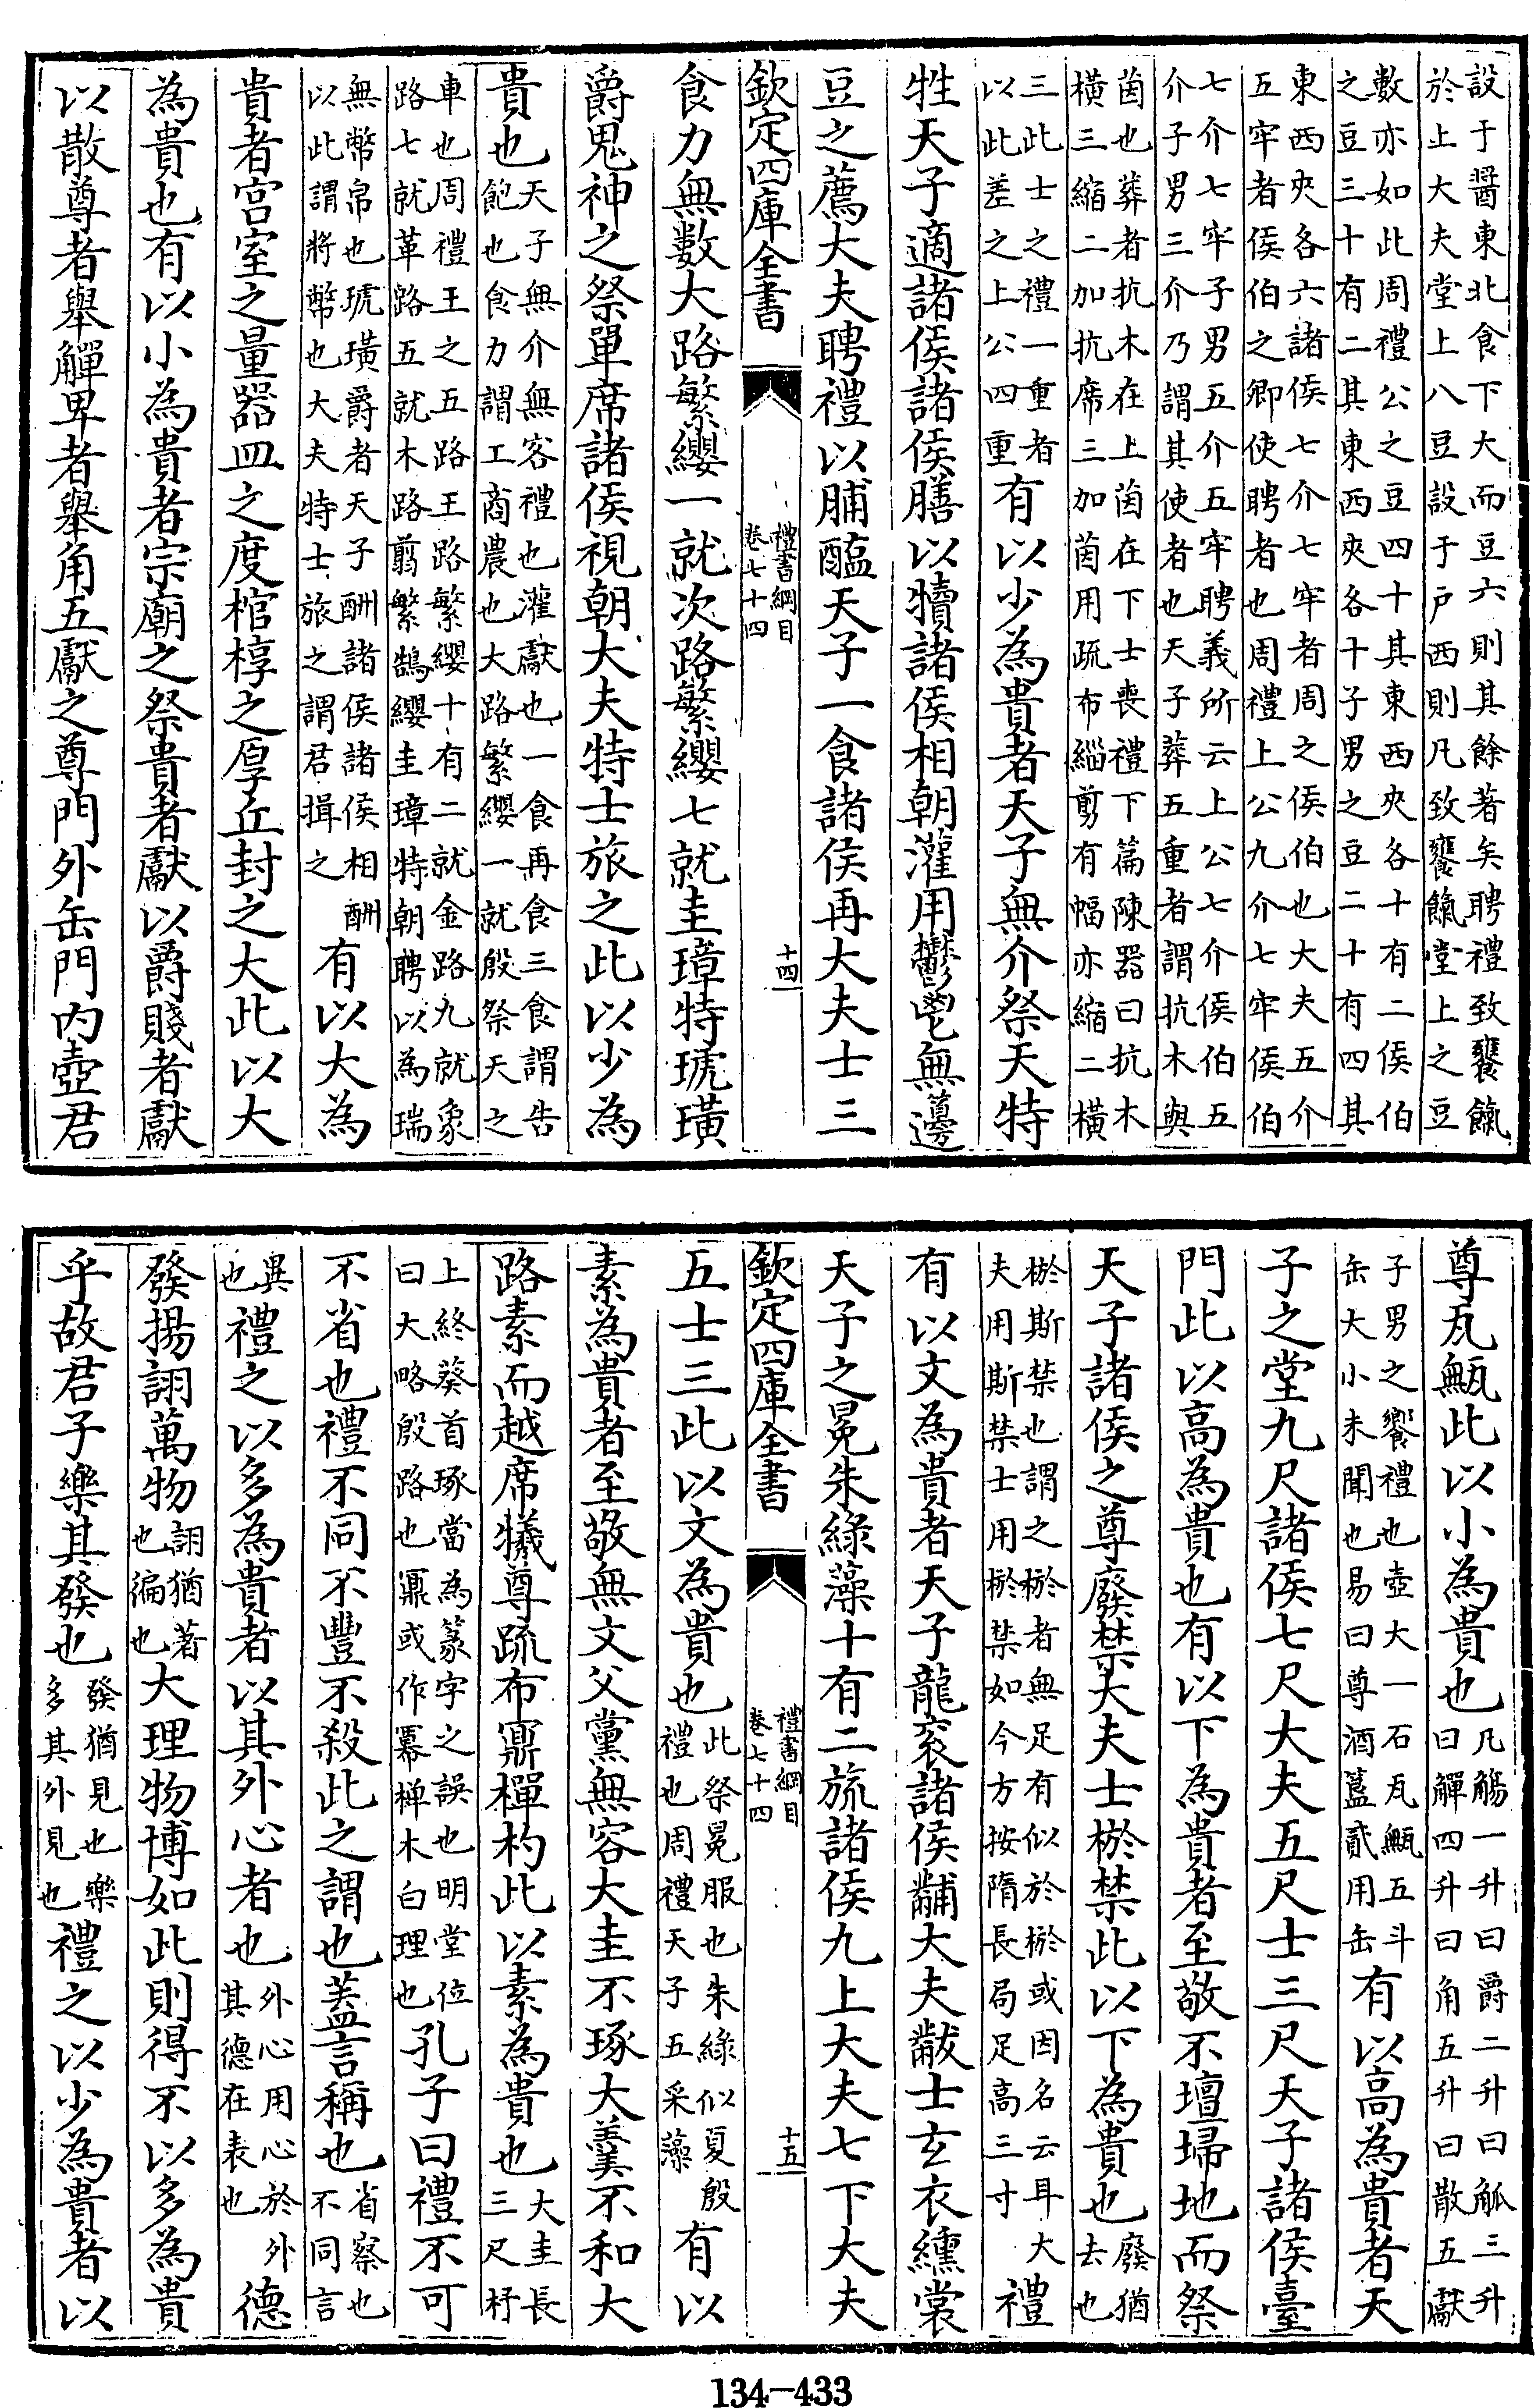 設于醤東北食下大而豆六則其餘著矣聘禮致饔餼
於上大夫堂上八豆設于戶西則凡致饔餼堂上之豆
數亦如此周禮公之豆四十其東西夾各十有二侯伯
之豆三十有二其東西夾各十子男之豆二十有四其
東西夾各六諸侯七介七牢者周之侯伯也大夫五介
五牢者侯伯之卿使聘者也周禮上公九介七牢侯伯
七介七牢子男五介五牢聘義所云上公七介侯伯五
介子男三介乃謂其使者也天子葬五重者謂抗木與
茵也葬者抗木在上茵在下士喪禮下篇陳器曰抗木
橫三縮二加抗席三加茵用疏布緇剪有幅亦縮二橫
三此士之禮一重者以此差之上公四重有以少為貴者天子無介祭天特
牲天子適諸侯諸侯膳以犢諸侯相朝灌用鬱鬯無籩
豆之薦大夫聘禮以脯醢天子一食諸侯再大夫士三
欽定四庫全書 禮書綱目 卷七十四 十四
食力無數大路繁纓一就次路繁纓七就圭璋特琥璜
爵鬼神之祭單席諸侯視朝大夫特士旅之此以少為
貴也天子無介無客禮也灌獻也一食再食三食謂告飽也食力謂工商農也大路繁纓一就殷祭天之
車也周禮王之五路王路繁纓十有二就金路九就象
路七就革路五就木路翦繁鵠纓圭璋特朝聘以為瑞
無幣帛也琥璜爵者天子酬諸侯諸侯相酬以此謂將幣也大夫特士旅之謂君揖之有以大為
貴者宮室之量器皿之度棺椁之厚丘封之大此以大
為貴也有以小為貴者宗廟之祭貴者獻以爵賤者獻
以散尊者舉觶卑者舉角五獻之尊門外缶門內壺君
尊瓦甒此以小為貴也凡觴一升曰爵二升曰觚三升曰觶四升曰角五升曰散五獻
子男之饗禮也壺大一石瓦甒五斗缶大小未聞也易曰尊酒簋貳用缶有以高為貴者天
子之堂九尺諸侯七尺大夫五尺士三尺天子諸侯臺
門此以高為貴也有以下為貴者至敬不壇埽地而祭
天子諸侯之尊廢禁大夫士棜禁此以下為貴也廢猶去也
棜斯禁也謂之棜者無足有似於棜或因名云耳大夫用斯禁士用棜禁如今方按隋長局足高三寸禮
有以文為貴者天子龍衮諸侯黼大夫黻士玄衣纁裳
天子之冕朱綠藻十有二旒諸侯九上大夫七下大夫
欽定四庫全書 禮書綱目 卷七十四 十五
五士三此以文為貴也此祭冕服也朱綠似夏殷禮也周禮天子五采藻有以
素為貴者至敬無文父黨無容大圭不琢大羹不和大
路素而越席犧尊疏布鼏樿杓此以素為貴也大圭長三尺杼
上終葵首琢當為篆字之誤也明堂位曰大路殷路也鼏或作幂樿木白理也孔子曰禮不可
不省也禮不同不豐不殺此之謂也蓋言稱也省察也不同言
異也禮之以多為貴者以其外心者也外心用心於外其德在表也德
發揚詡萬物詡猶著也徧也大理物博如此則得不以多為貴
乎故君子樂其發也發猶見也樂多其外見也禮之以少為貴者以
134-433